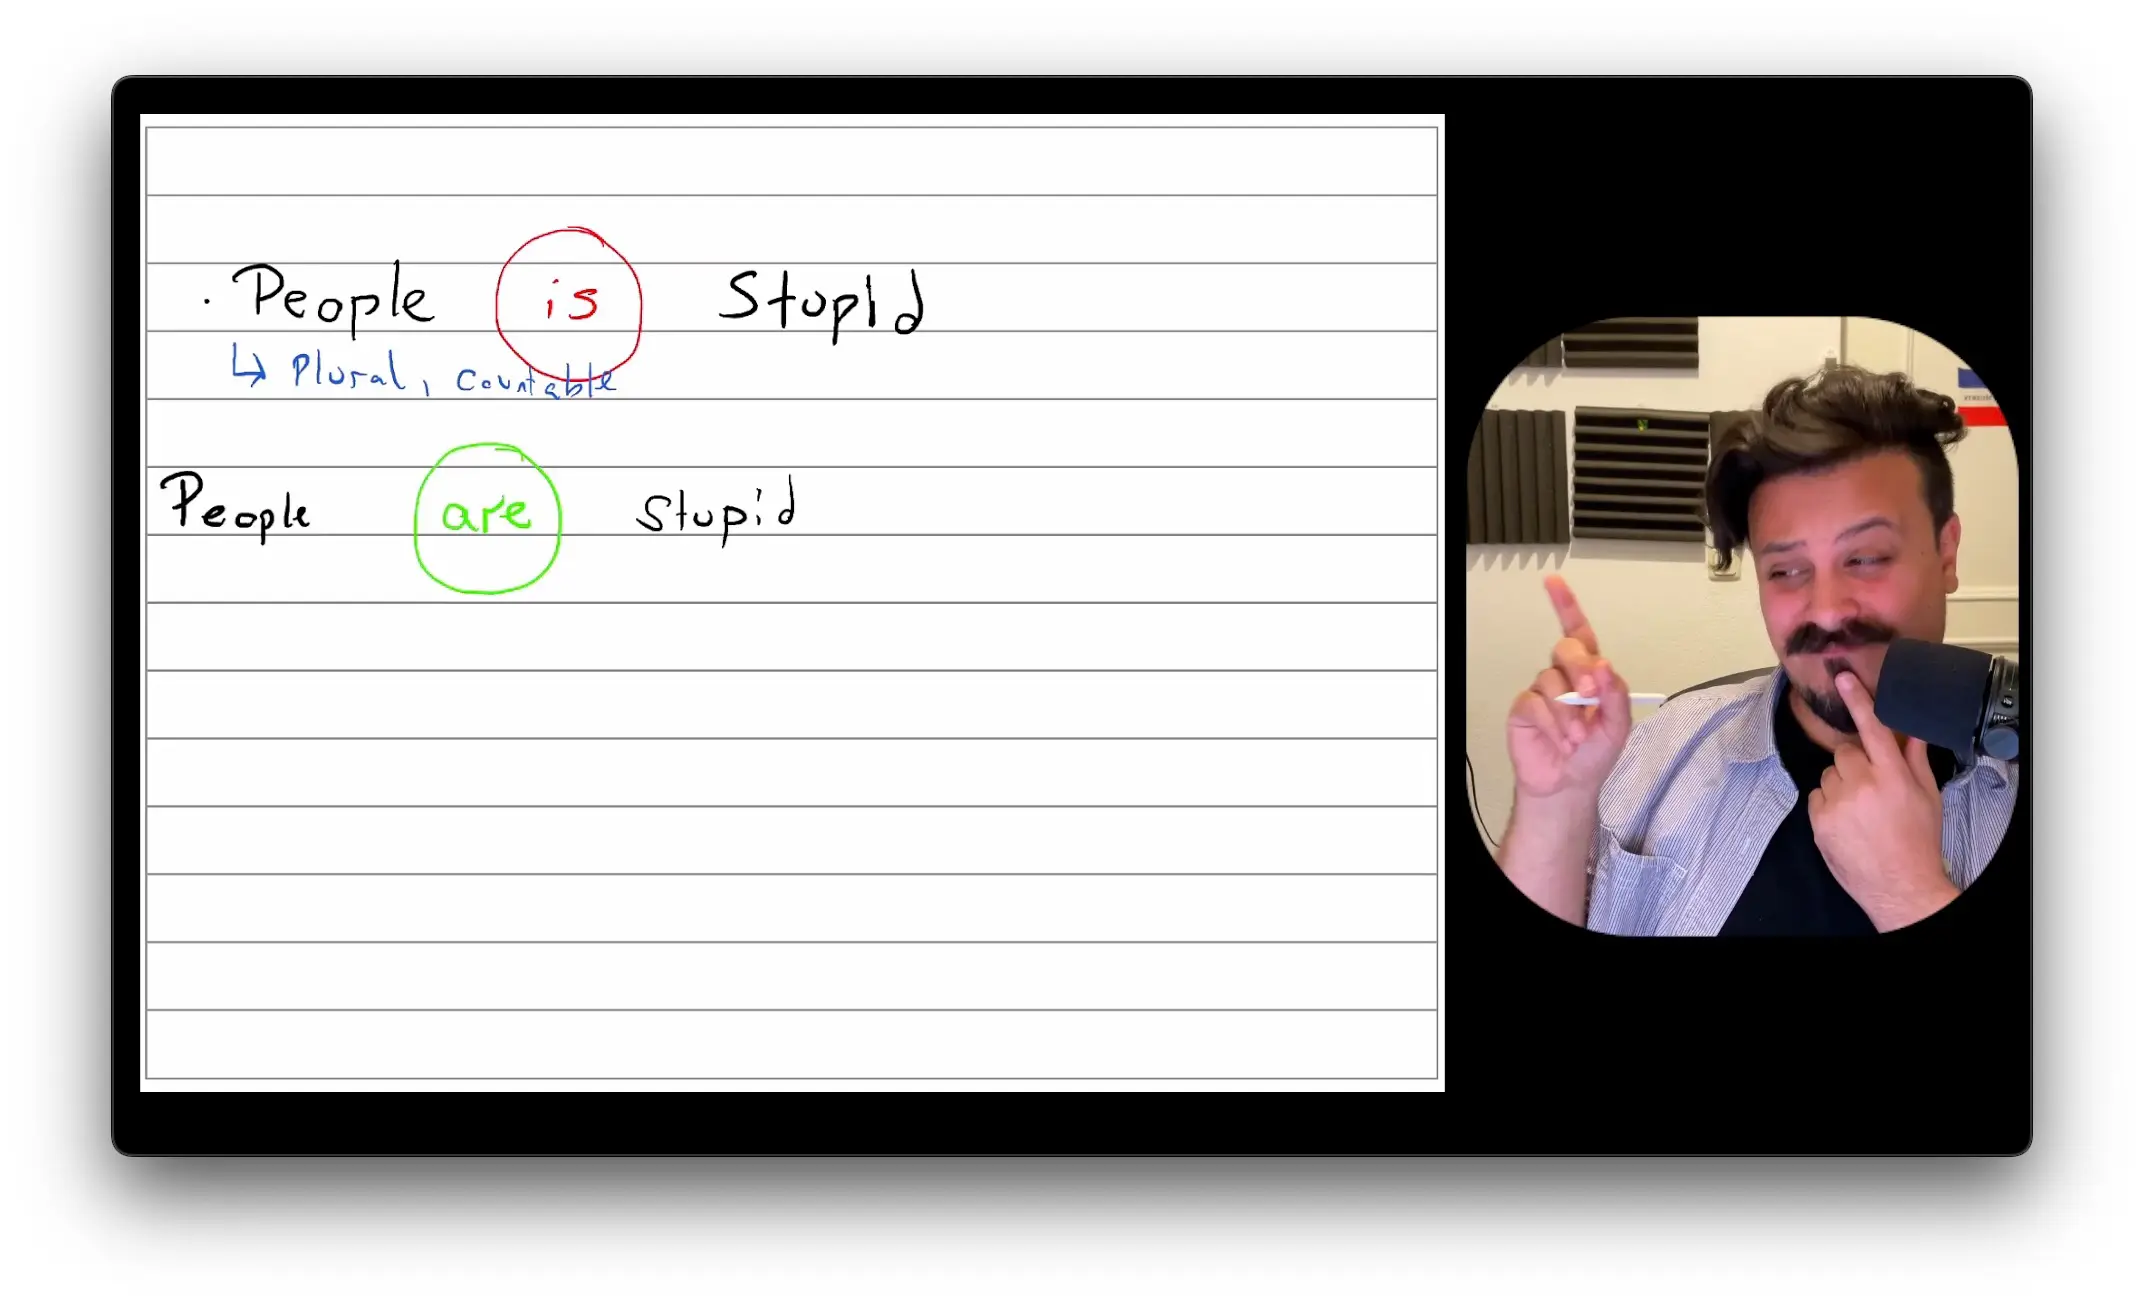 · People is Stupid
↳ Plural, countable
People are Stupid